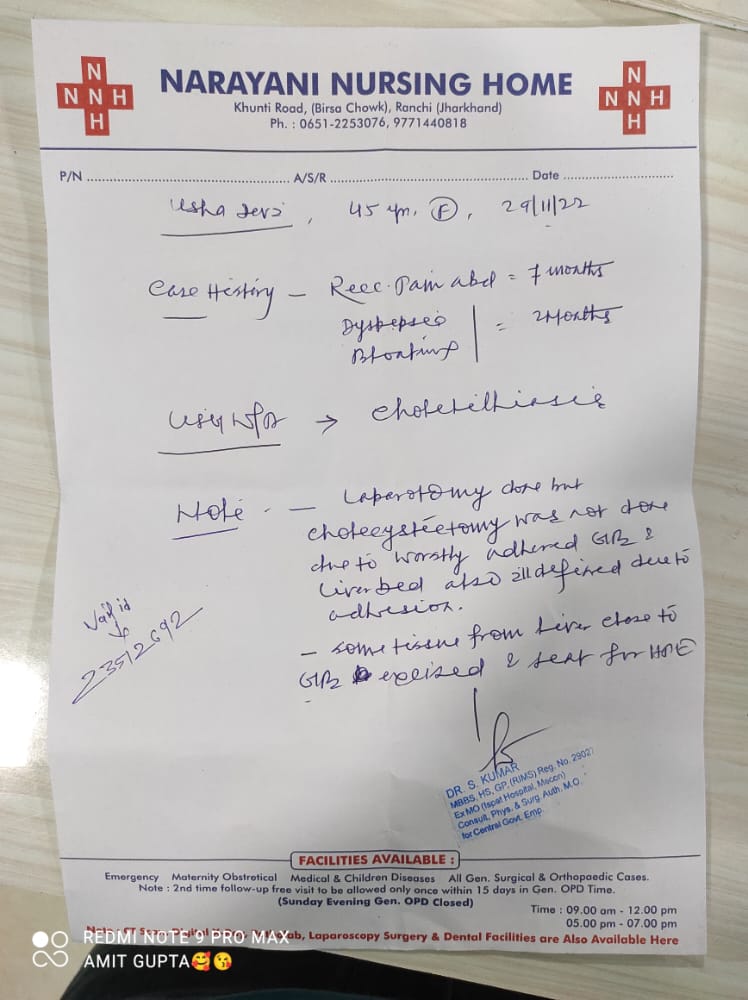 N
N N H
H
N
N N H
H
NARAYANI NURSING HOME
Khunti Road, (Birsa Chowk), Ranchi (Jharkhand)
Ph. : 0651-2253076, 9771440818
P/N ............ A/S/R ............ Date ............
Usha Devi, 45 yr. F, 29/11/22
Case History – Recc. Pain abd = 7 months
Dyspepsia = 2 Months
Bloating
→ Cholelithiasis
Note – Laparotomy done but
cholecystectomy was not done
due to worstly adhered GB &
Liver bed also illdefined due to
adhesion.
– some tissue from Liver close to
GB excised & sent for HPE
23512692
DR. S. KUMAR
MBBS, HS, GP, (RIMS) Reg. No. 29027
Ex MO (Ispat Hospital, Mecon)
Consult, Phys. & Surg. Auth. M.O.
for Central Govt. Emp.
FACILITIES AVAILABLE :
Emergency Maternity Obstretical Medical & Children Diseases All Gen. Surgical & Orthopaedic Cases.
Note : 2nd time follow-up free visit to be allowed only once within 15 days in Gen. OPD Time.
(Sunday Evening Gen. OPD Closed)
Time : 09.00 am - 12.00 pm
05.00 pm - 07.00 pm
Laparoscopy Surgery & Dental Facilities are Also Available Here
REDMI NOTE 9 PRO MAX
AMIT GUPTA🥰😘